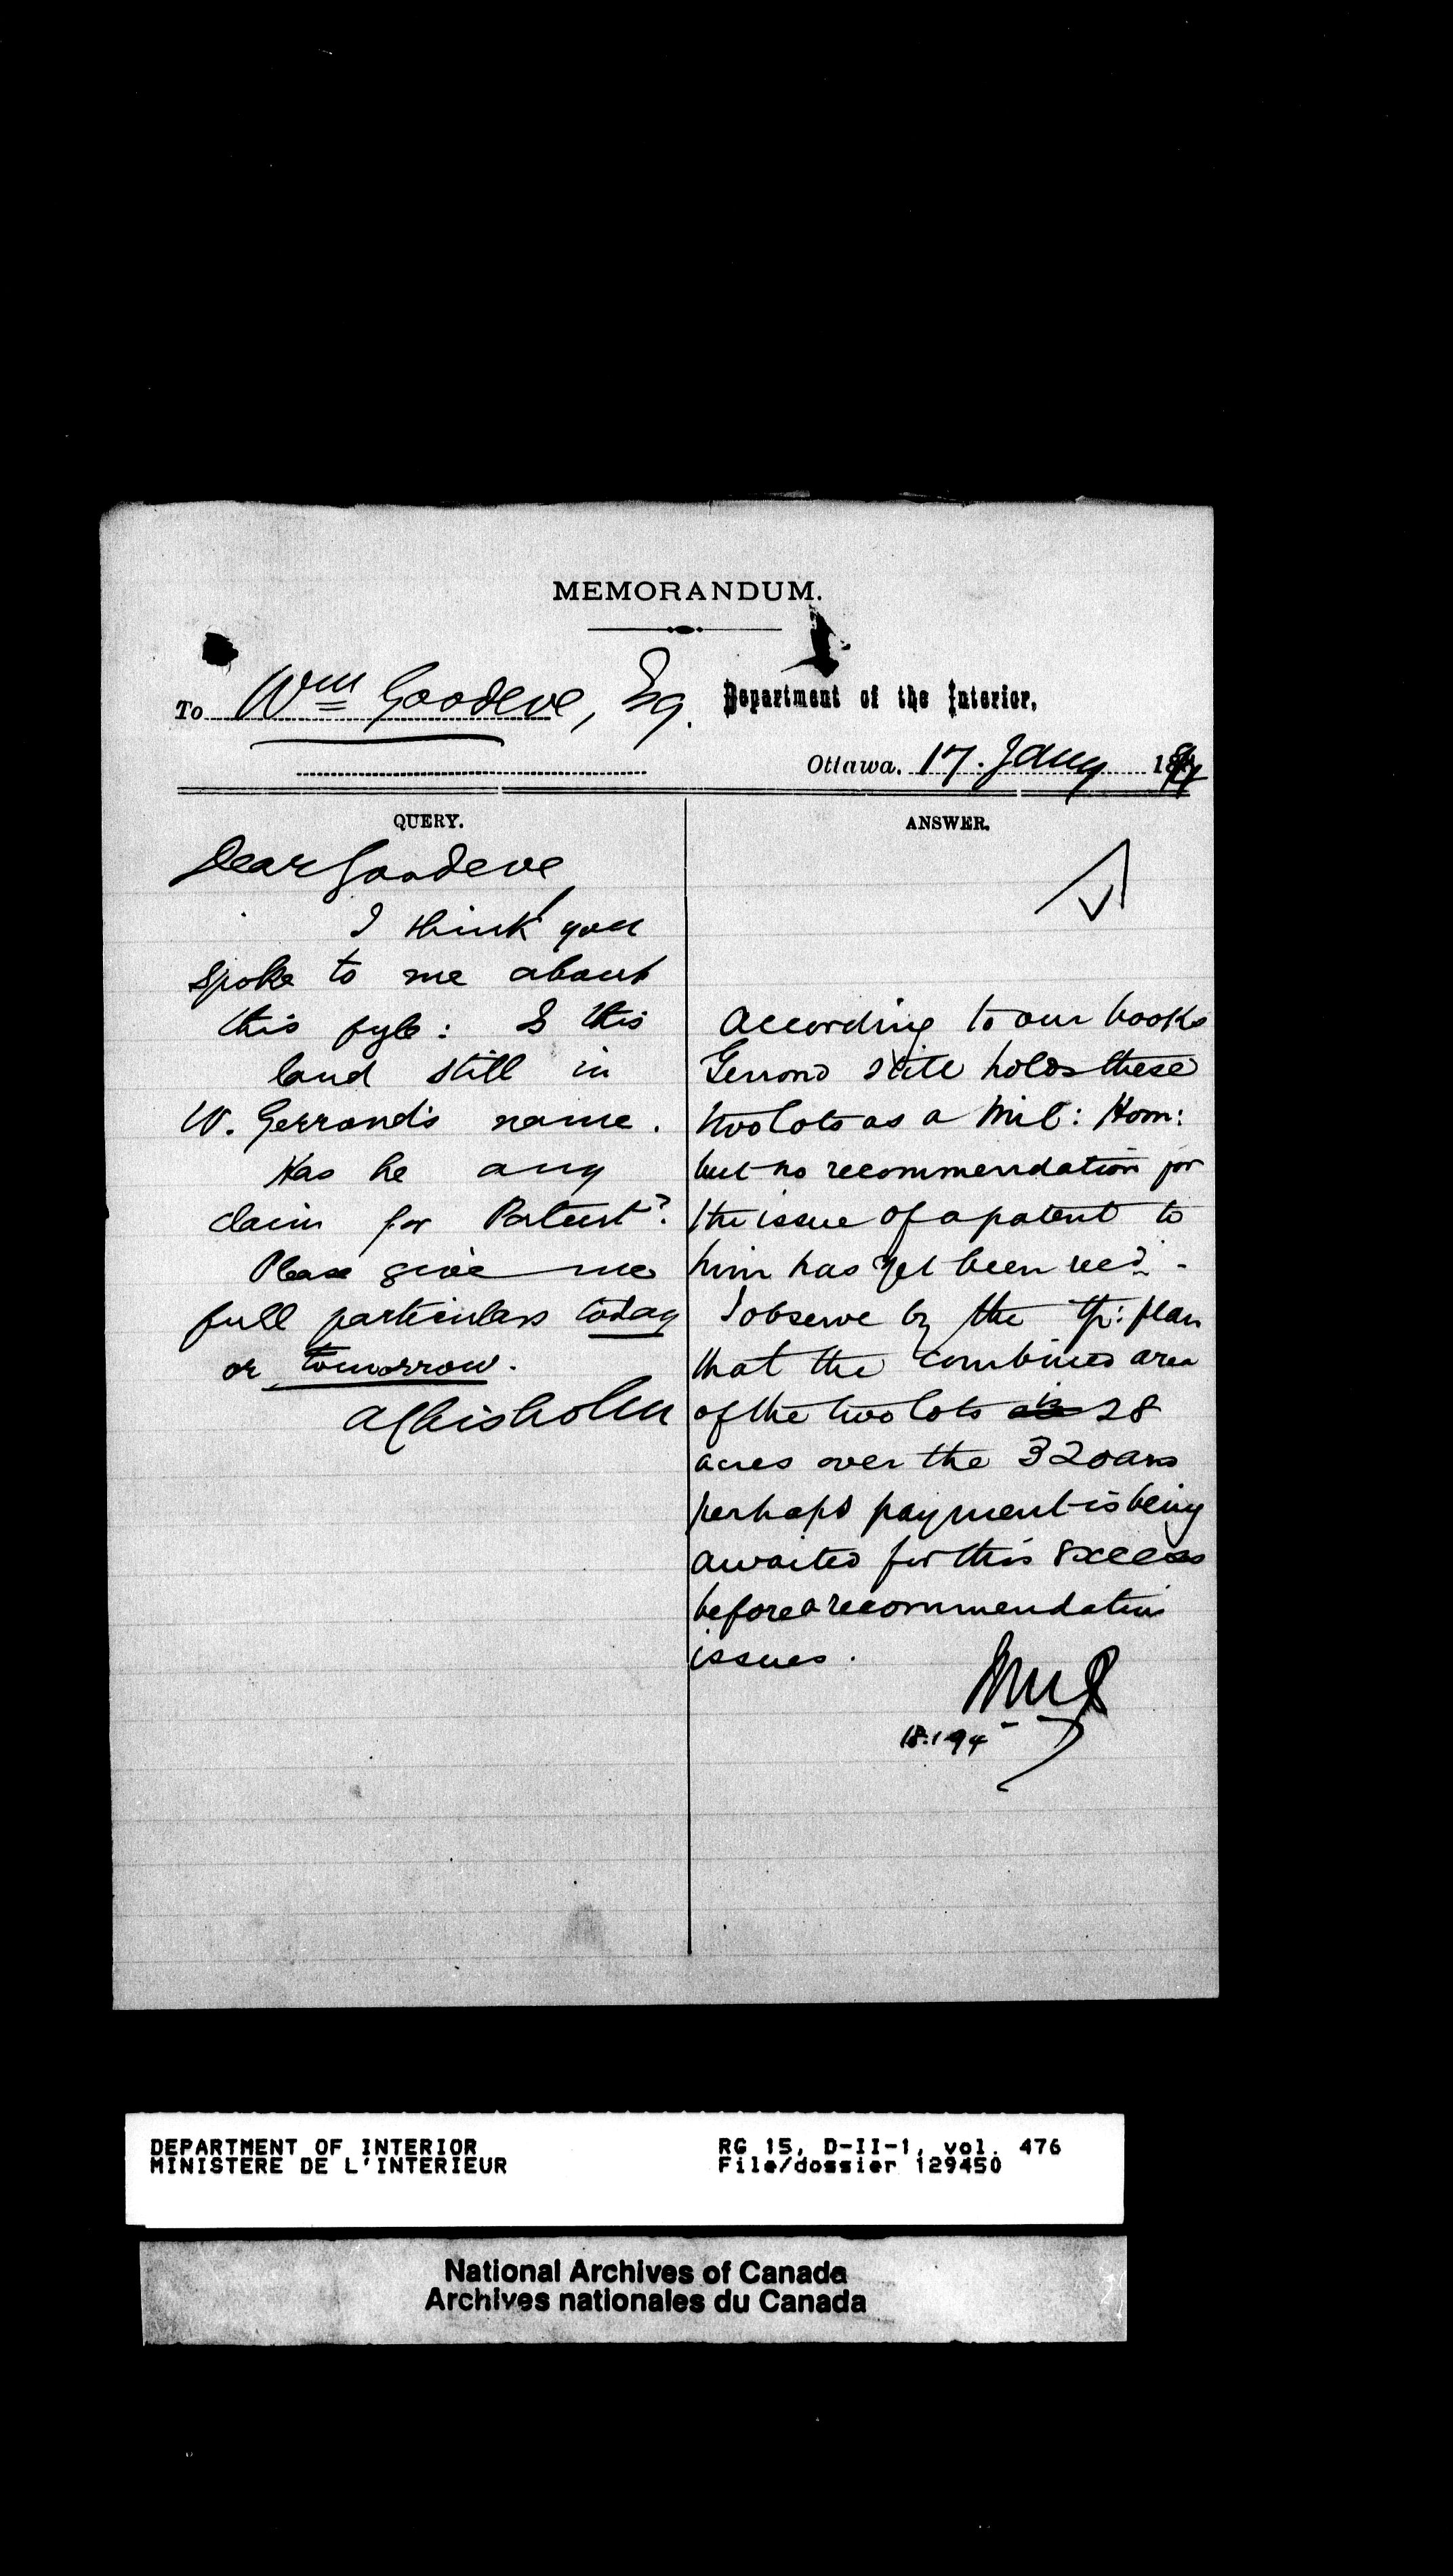 MEMORANDUM.
To Wm Goodeve, Esq. Department of the Interior,
Ottawa, 17. Jany 1894
QUERY.
Dear Goodeve,
I think you
spoke to me about
this fyle: Is this
land still in
W. Gerrond's name.
Has he any
claim for Patent?
Please give me
full particulars today
or tomorrow.
AChisholm
ANSWER.
According to our books
Gerrond still holds these
two lots as a Mil: Hom:
but no recommendation for
the issue of a patent to
him has yet been recd -
I observe by the tp: plan
that the combined area
of the two lots is 28
acres over the 320 acs
perhaps payment is being
awaited for this excess
before a recommendation
issues.
18.1.94
DEPARTMENT OF INTERIOR
MINISTERE DE L'INTERIEUR
RG 15, D-II-1, vol. 476
File/dossier 129450
National Archives of Canada
Archives nationales du Canada